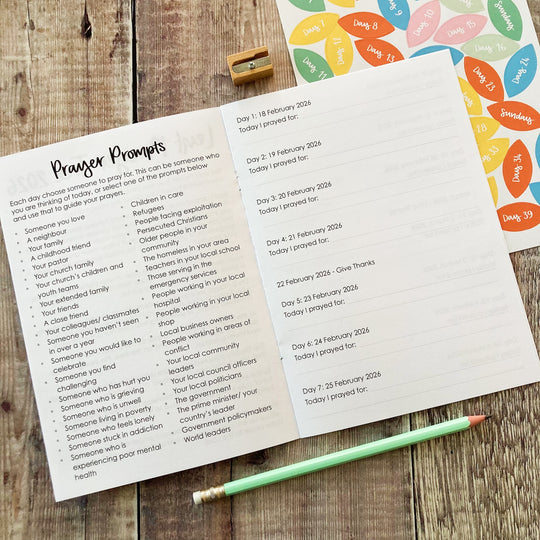 Prayer Prompts
Each day choose someone to pray for. This can be someone who
you are thinking of today, or select one of the prompts below
and use that to guide your prayers.
Someone you love
A neighbour
Your family
A childhood friend
Your pastor
Your church family
Your church's children and
youth teams
Your extended family
Your friends
A close friend
Your colleagues/ classmates
Someone you haven't seen
in over a year
Someone you would like to
celebrate
Someone you find
challenging
Someone who has hurt you
Someone who is grieving
Someone who is unwell
Someone living in poverty
Someone who feels lonely
Someone stuck in addiction
Someone who is
experiencing poor mental
health
Children in care
Refugees
People facing exploitation
Persecuted Christians
Older people in your
community
The homeless in your area
Teachers in your local school
Those serving in the
emergency services
People working in your local
hospital
People working in your local
shop
Local business owners
People working in areas of
conflict
Your local community
leaders
Your local council officers
Your local politicians
The government
The prime minister/ your
country's leader
Government policymakers
World leaders
Day 1: 18 February 2026
Today I prayed for:
Day 2: 19 February 2026
Today I prayed for:
Day 3: 20 February 2026
Today I prayed for:
Day 4: 21 February 2026
Today I prayed for:
22 February 2026 - Give Thanks
Day 5: 23 February 2026
Today I prayed for:
Day 6: 24 February 2026
Today I prayed for:
Day 7: 25 February 2026
Today I prayed for:
Day 7
Day 8
Day 9
Day 10
Sunday
Day 11
Day 13
Day 15
Day 16
Day 23
Day 24
Sunday
Day 34
Day 39